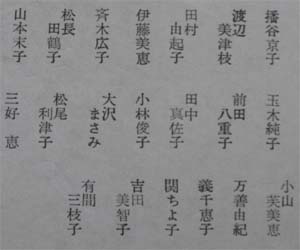 播谷京子 玉木純子 小山芙美恵
渡辺美津枝 前田八重子 万善由紀
田村由起子 田中真佐子 義千恵子
伊藤美恵 小林俊子 関ちよ子
斉木広子 大沢まさみ 吉田美智子
松長田鶴子 松尾利津子 有間三枝子
山本末子 三好恵